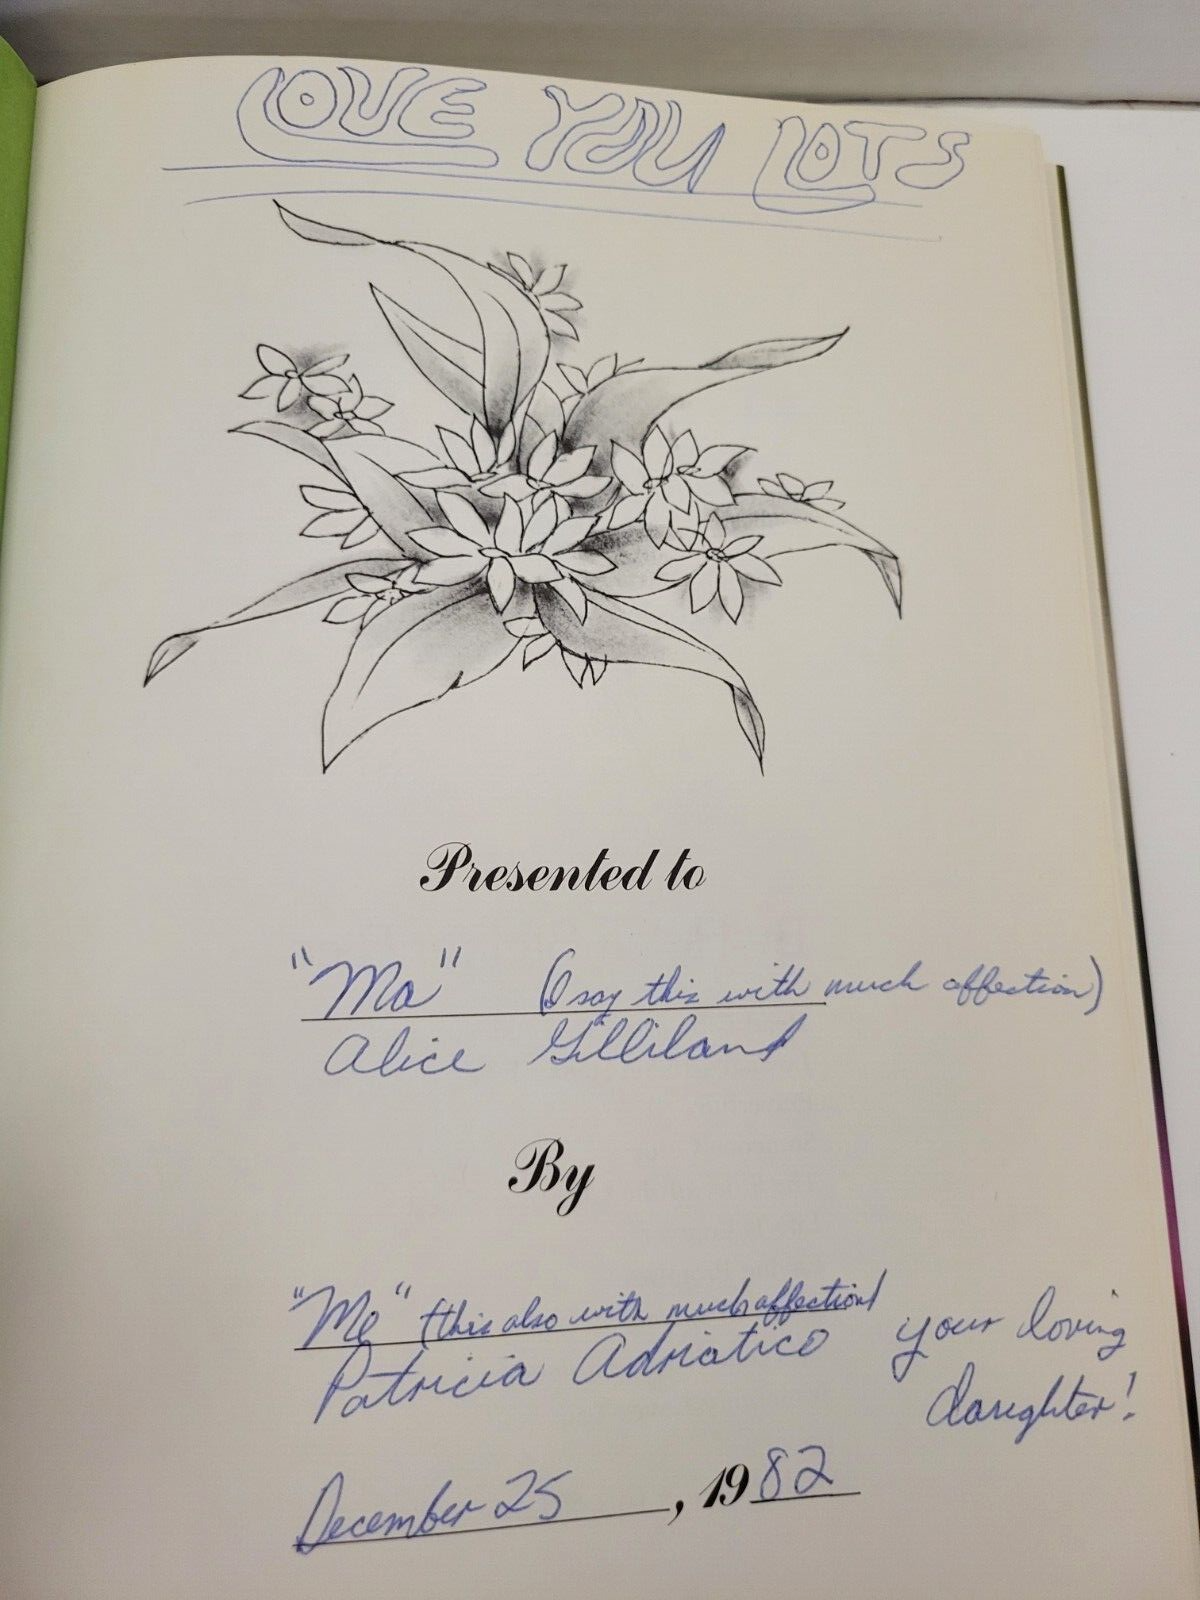 LOVE YOU LOTS
Presented to
"Ma" (I say this with much affection)
Alice Gilliland
By
"Me" (this also with much affection)
Patricia Adriatico your loving
daughter!
December 25, 1982